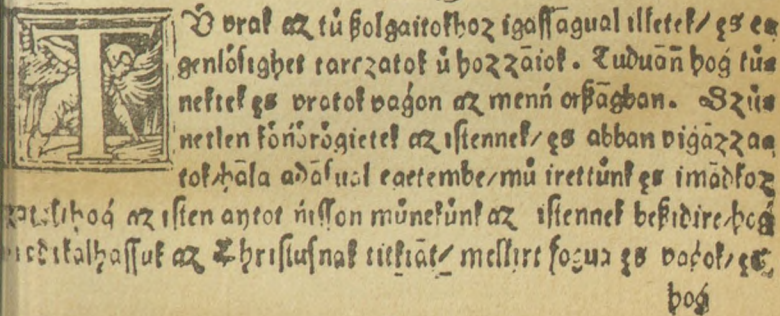 TŰ vrak az tű ßolgaitokhoz igaſſāgual ilſetek/ ęs eg
genlősighet tarczatok ű hozzāiok. Tuduāṅ hoǵ tűs
nektek ęs vratok vaǵon az menṅ orßāgban. Szűs
netlen kőńőrőgietek az iſtennek/ ęs abban viǵāzza⸗
tok/hāla adāſual egetembe/mű irettűnk ęs imādkoz
zatok/hoǵ az iſten aytot ńiſſon műnekűnk az iſtennek beßidire/hoǵ
predikalhaſſuk az Chriſtuſnak titkāt/ meſſirt fogua ęs vaǵok/ ęs
hoǵ